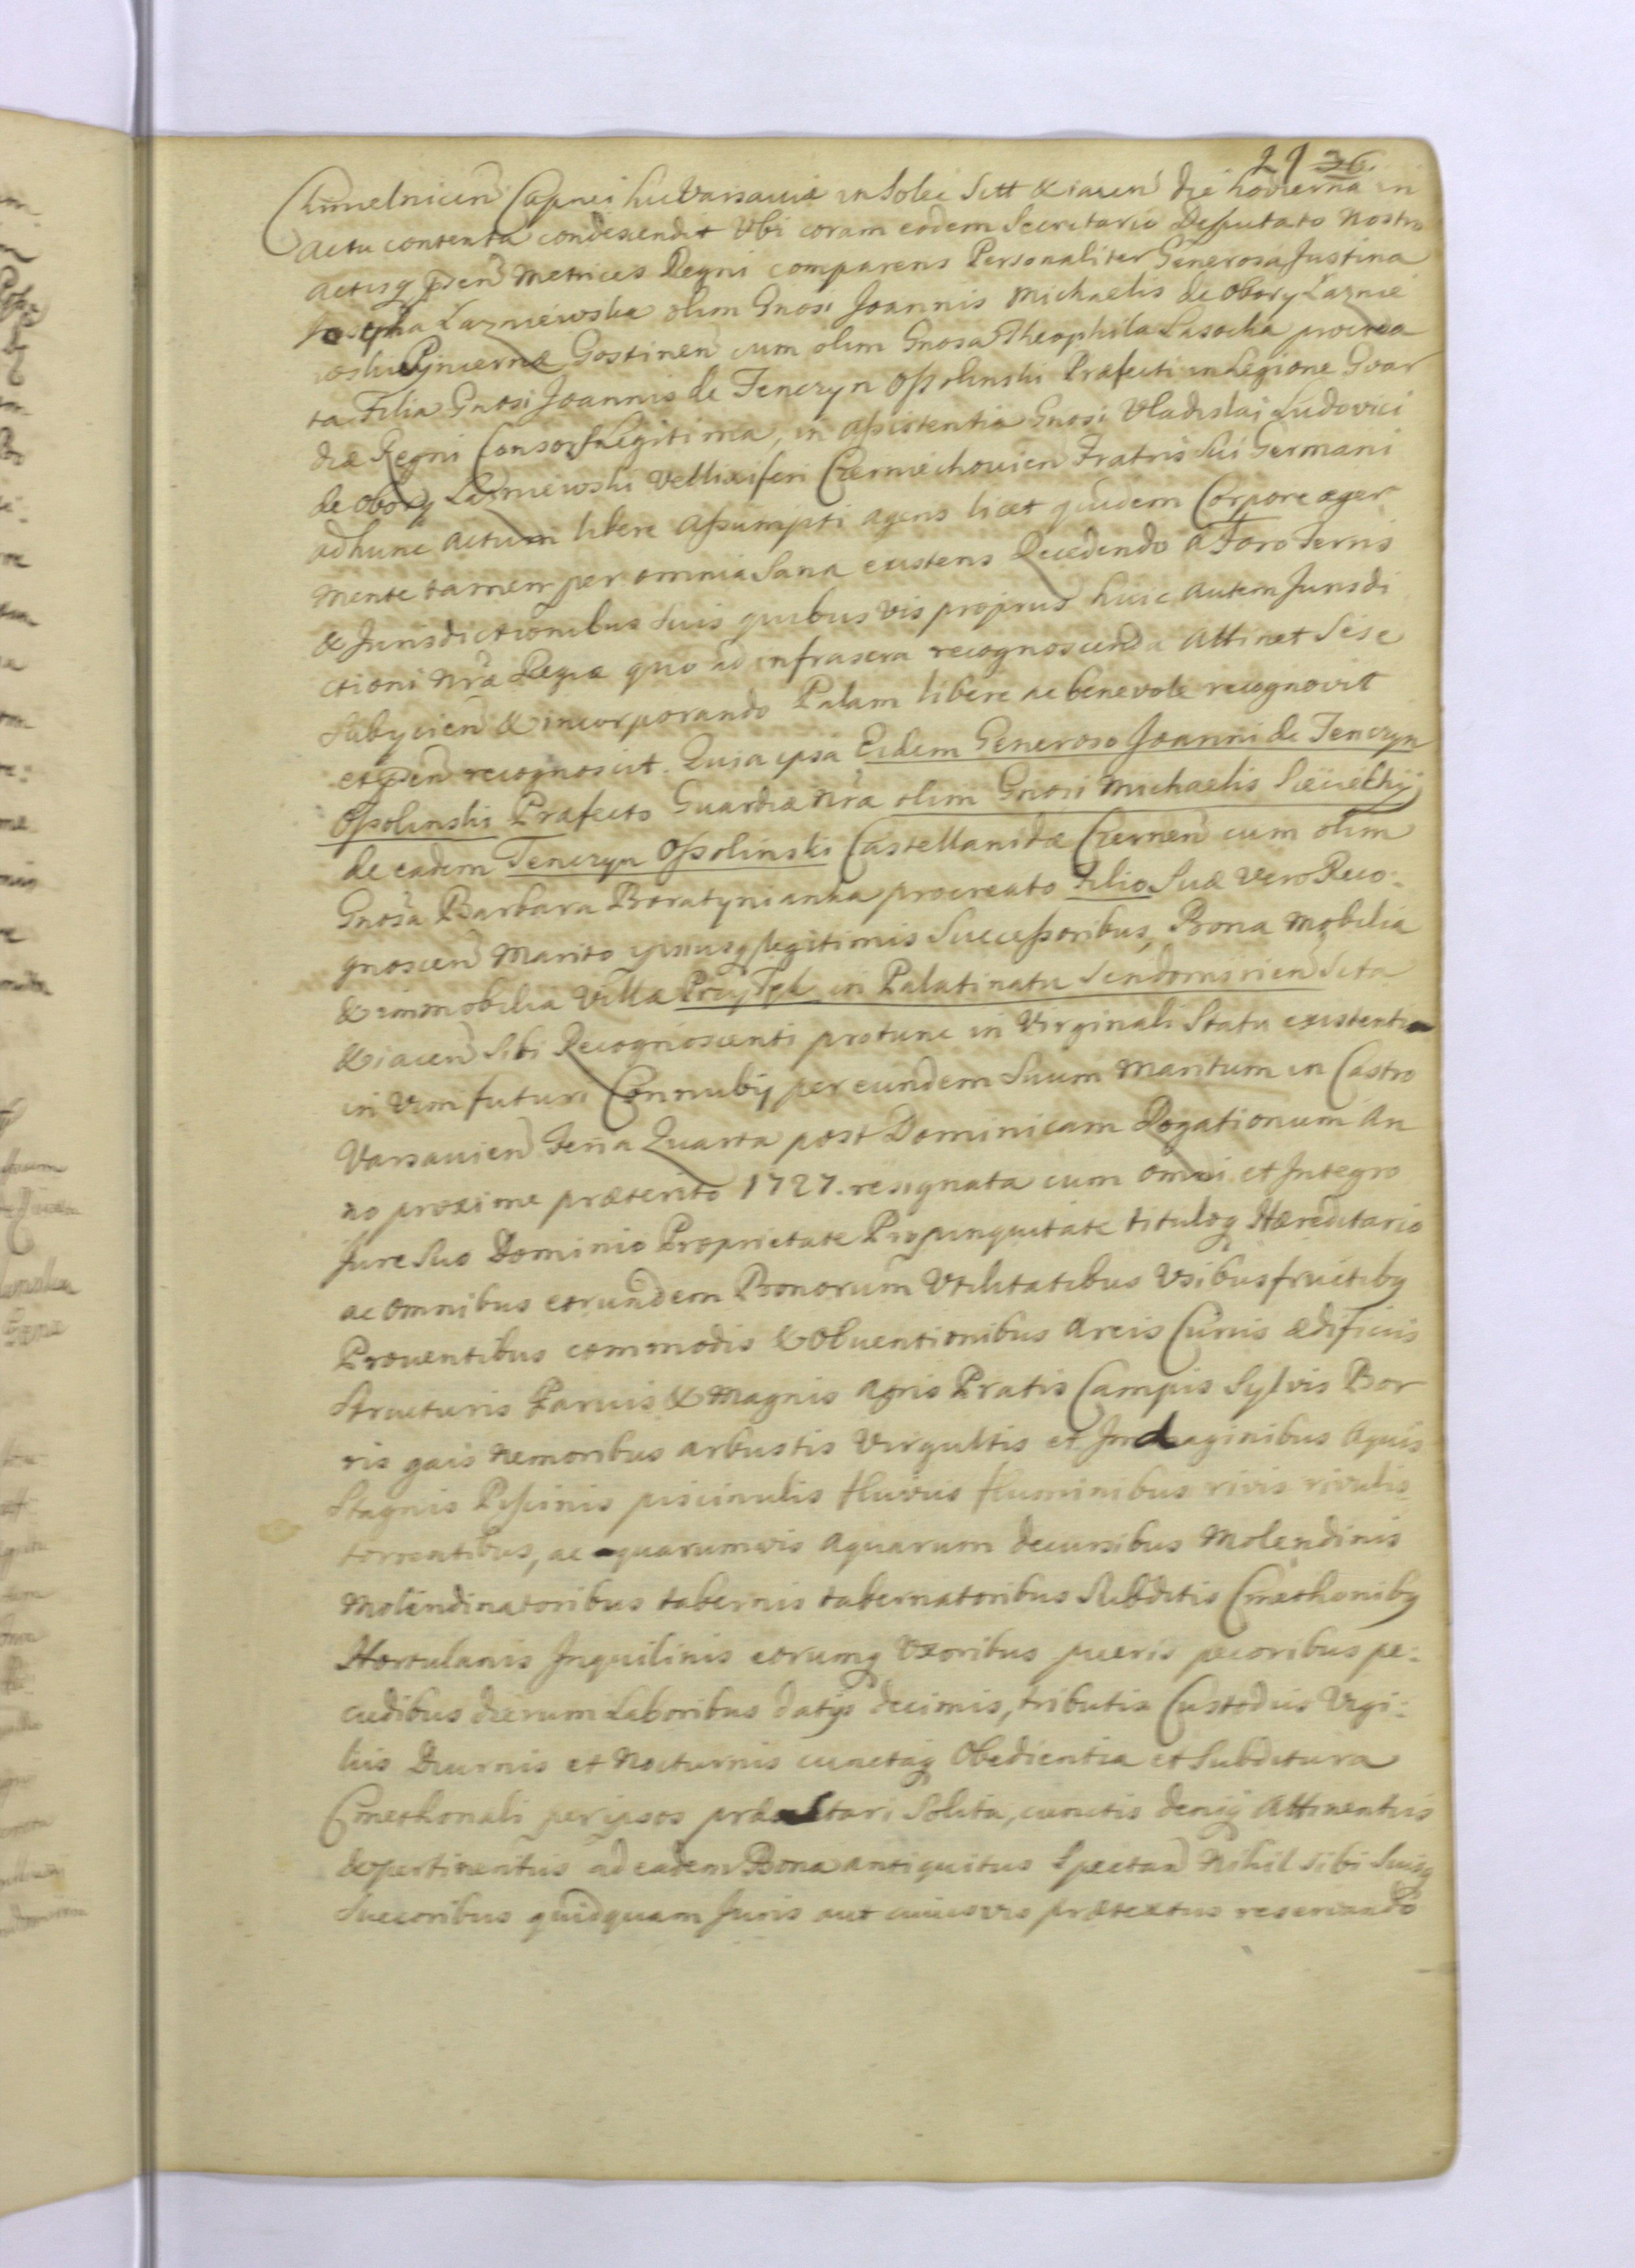 29 36
Chmelnicen Capnei hic Varsaviæ in Solec Sitt & iacen die hodierna in
actu contenta condescendit Ubi coram eodem Secretario Deputato Nostro
actisq pñen Metrices Regni comparens Personaliter Generosa Justina
Josepha Łazniewska olim Gnosi Joannis Michaelis de Obory Łaznie
wski Pincernæ Gostinen cum olim Gnosa Theophila Lasocka procrea
ta Filia Gnosi Joannis de Tenczyn Ossolinski Præfecti in Legione Gvar
diæ Regni Consors Legitima, in assistentia Gnosi Vladislai Ludovici
de Obory Łazniewski Vexilliferi Czerniechovien Fratris Sui Germani
ad hunc actum libere assumpti agens licet quidem Corpore ægra
Mente tamen per omnia Sana existens Recedendo a Foro Terris
& Jurisdictionibus Suis quibusvis proprus huic autem Jurisdi
ctioni Nrã Regiæ quo ad infrascra recognoscenda attinet Sese
Subycien & incorporando Palam libere ac benevole recognovit
et pñen recognoscit. Quia ipsa Eidem Generoso Joanni de Tenczyn
Ossolinski Præfecto Guardiæ Nrã olim Gnosi Michaelis Sieciechij
de eadem Tenczyn Ossolinski Castellanidæ Czernen cum olim
Gnosa Barbara Boratynianka procreato Filio Suæ vero Reco-
gnoscen Marito ipsiusq legitimis Successoribus, Bona Mobilia
& immobilia Villa Przytyk in Palatinatu Sendomirien Sita
& iacen Sibi Recognoscenti pro tunc in Virginali Statu existenti
in Vim futuri Connubij per eundem Suum Maritum in Castro
Varsavien Feria Quarta post Dominicam Rogationum An
no proxime præterito 1727. resignata cum omni et Integro
Jure Suo Dominio Proprietate Propinquitate tituloq Hæreditario
ac omnibus eorundem Bonorum Utilitatibus Usibus fructibq
Proventibus commodis & Obventionibus Areis Curiis ædificiis
Structuris Parvis & Magnis Agris Pratis Campis Sylvis Bor
ris gais Nemoribus arbustis Virgultis et Indaginibus Aquis
Stagnis Piscinis piscinulis fluviis fluminibus rivis rivulis
torrentibus, ac quarumvis Aquarum decursibus Molendinis
Molendinatoribus tabernis tabernatoribus Subditis Cmethonibq
Hortulanis Inquilinis eorumq Uxoribus pueris pecoribus pe-
cudibus dierum Laboribus datijs decimis, tributis Custodiis Vigi-
liis Diurnis et Nocturnis cunctaq Obedientia et Subditura
Cmethonali per ipsos præstari Solita, cunctis deniq Attinentiis
& pertinentiis ad eadem Bona antiquitus Spectan Nihil Sibi Suisq
Succoribus quidquam Juris aut cuiusvis prætextus reservando